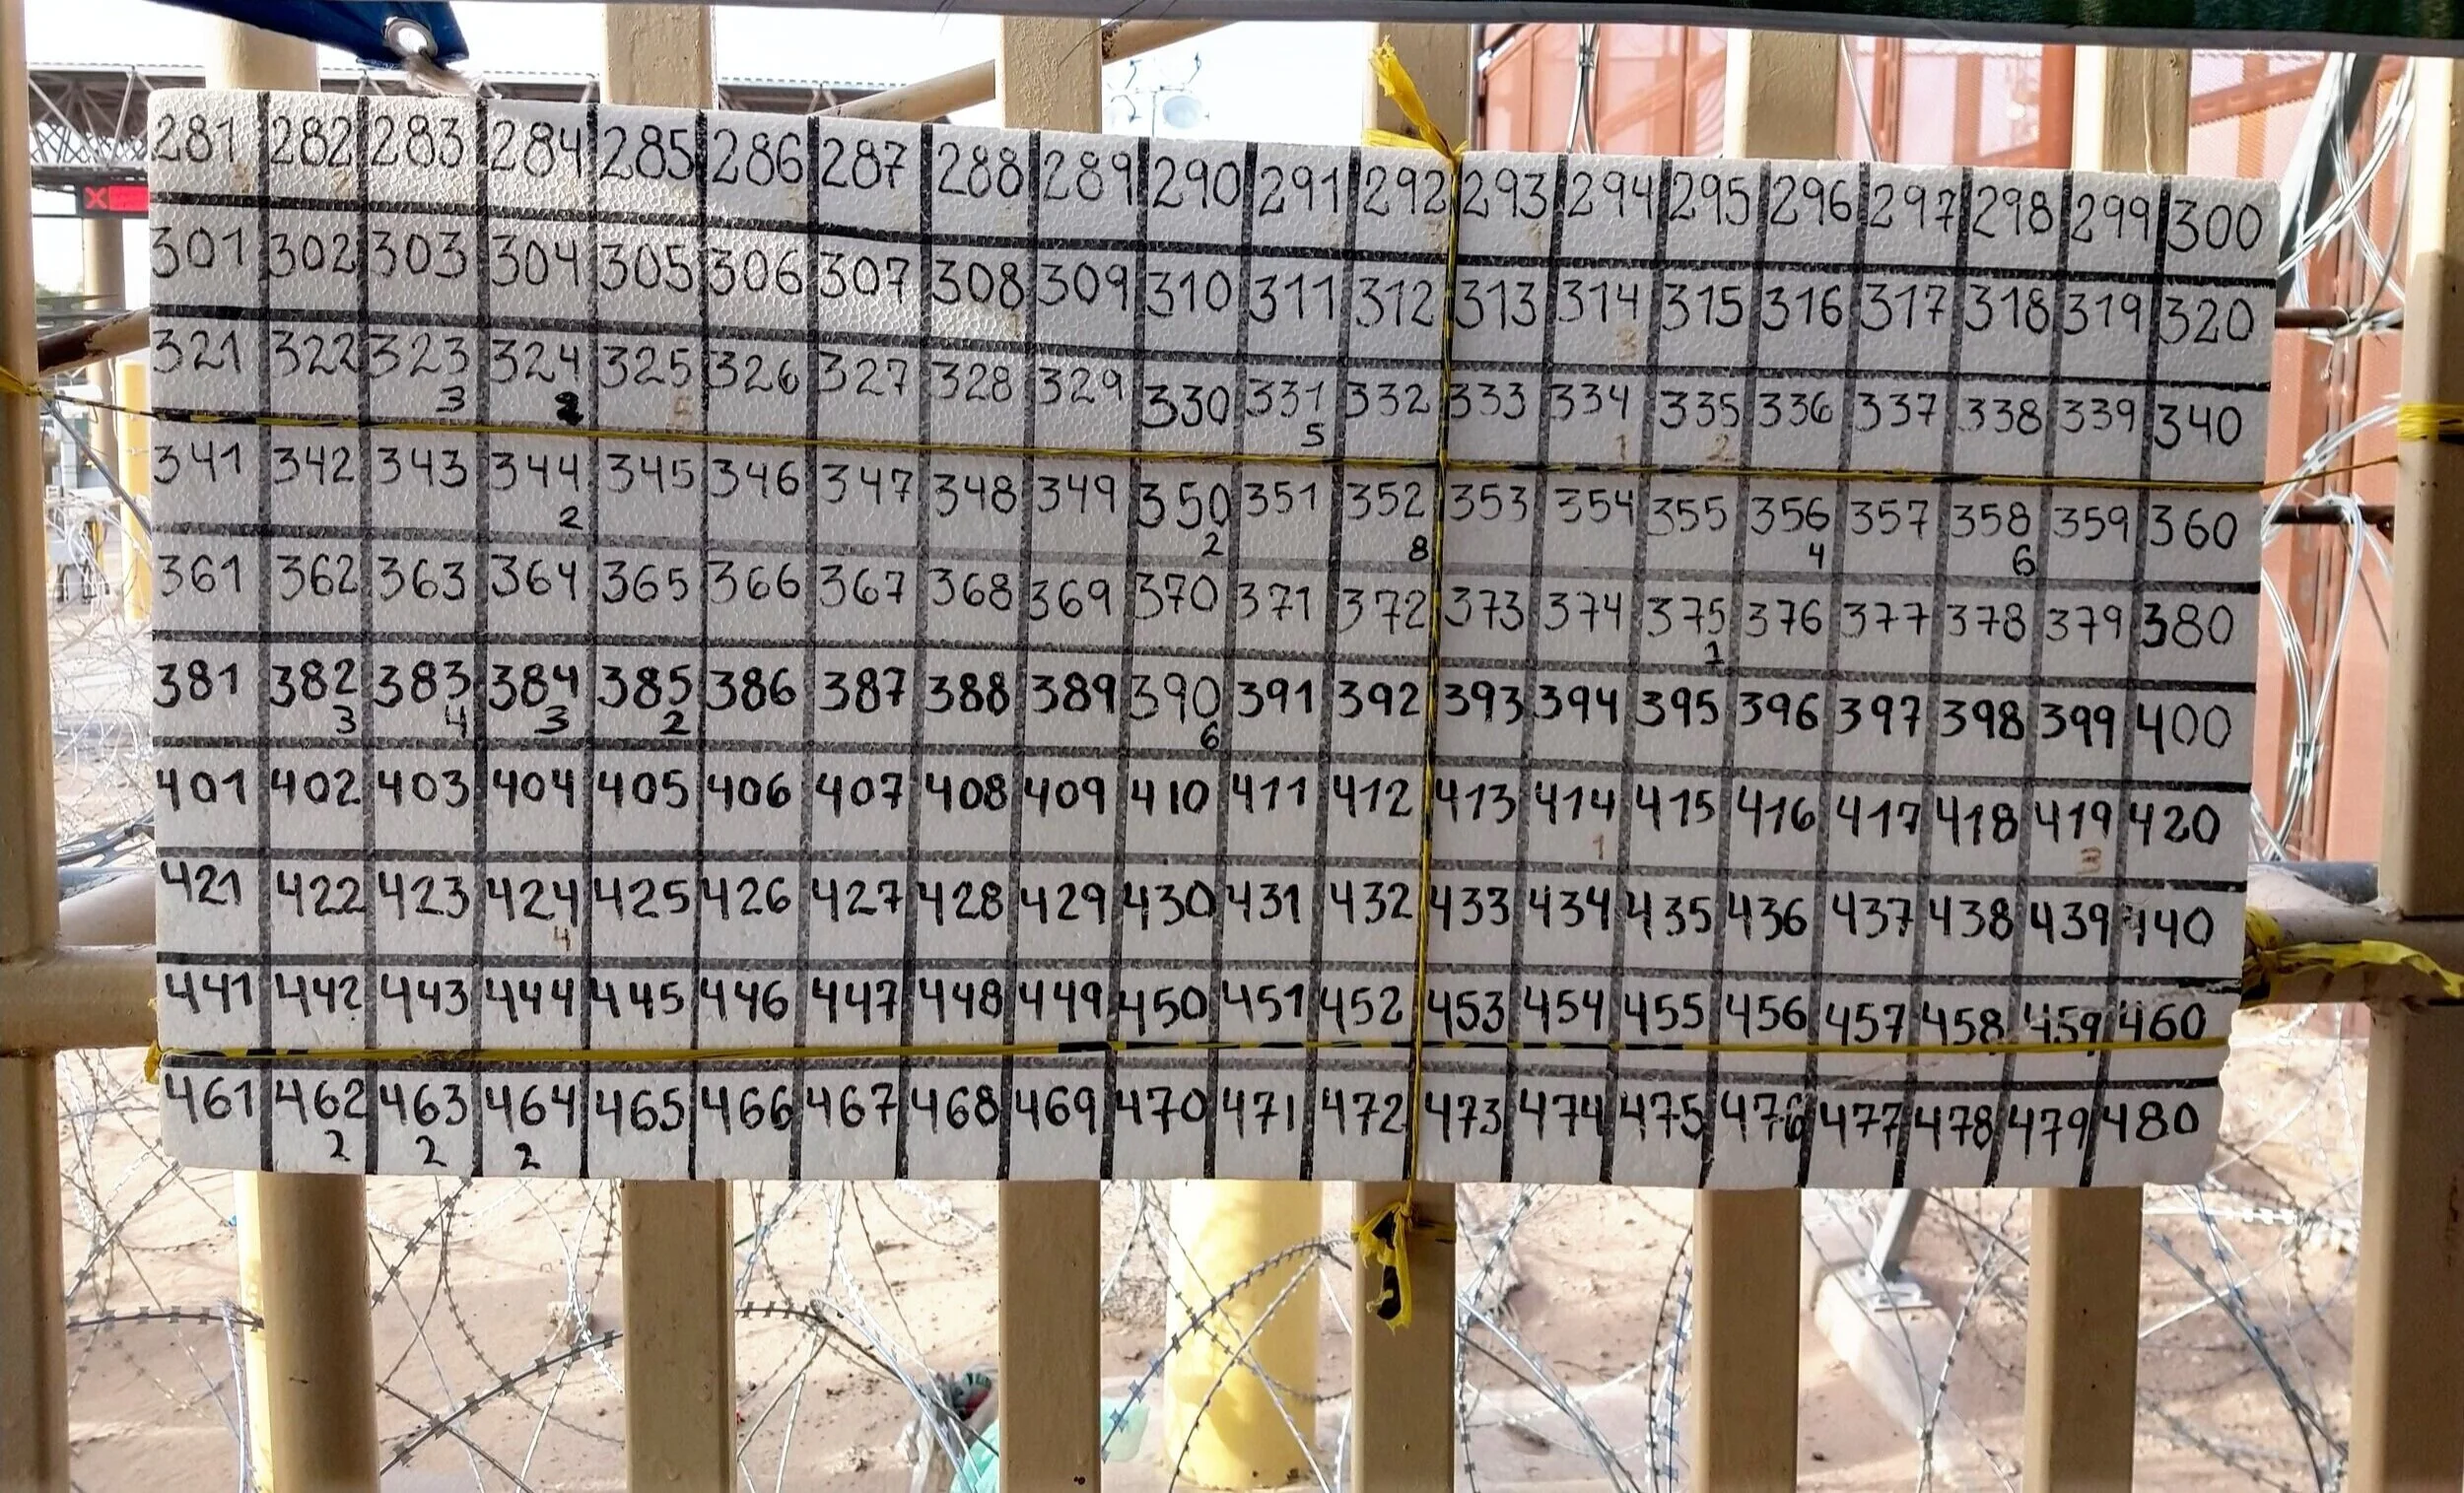 281 282 283 284 285 286 287 288 289 290 291 292 293 294 295 296 297 298 299 300
301 302 303 304 305 306 307 308 309 310 311 312 313 314 315 316 317 318 319 320
3
321 322 323 324 325 326 327 328 329 330 331 332 333 334 335 336 337 338 339 340
3 2 5 1 2
341 342 343 344 345 346 347 348 349 350 351 352 353 354 355 356 357 358 359 360
2 2 8 4 6
361 362 363 364 365 366 367 368 369 370 371 372 373 374 375 376 377 378 379 380
1
381 382 383 384 385 386 387 388 389 390 391 392 393 394 395 396 397 398 399 400
3 4 3 2 6
401 402 403 404 405 406 407 408 409 410 411 412 413 414 415 416 417 418 419 420
1 3
421 422 423 424 425 426 427 428 429 430 431 432 433 434 435 436 437 438 439 440
4
441 442 443 444 445 446 447 448 449 450 451 452 453 454 455 456 457 458 459 460
461 462 463 464 465 466 467 468 469 470 471 472 473 474 475 476 477 478 479 480
2 2 2